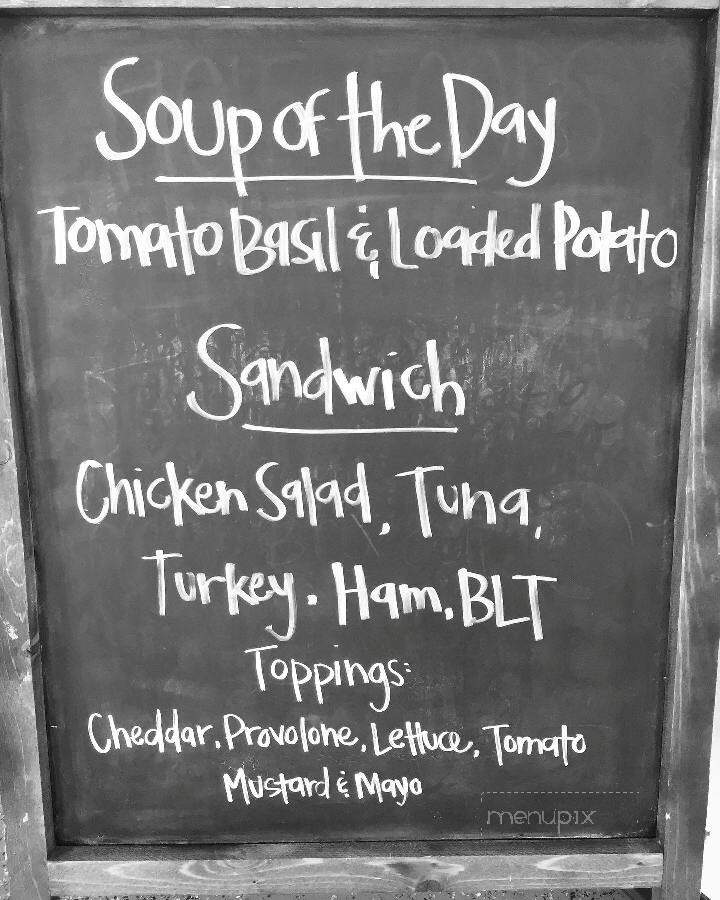 Soup of the Day
Tomato Basil & Loaded Potato
Sandwich
Chicken Salad, Tuna,
Turkey. Ham. BLT
Toppings:
Cheddar. Provolone. Lettuce, Tomato
Mustard & Mayo
menupix